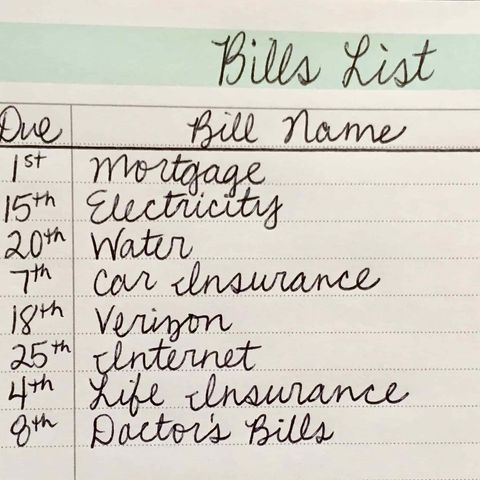 Bills List
Due Bill Name
1st Mortgage
15th Electricity
20th Water
7th Car Insurance
18th Verizon
25th Internet
4th Life Insurance
8th Doctor's Bills